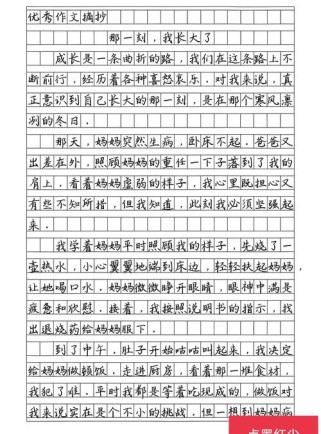 优秀作文摘抄
那一刻，我长大了
成长是一条曲折的路，我们在这条路上不
断前行，经历着各种喜怒哀乐．对我来说，真
正意识到自己长大的那一刻，是在那个寒风凛
冽的冬日．
那天，妈妈突然生病，卧床不起．爸爸又
出差在外，照顾妈妈的重任一下子落到了我的
肩上．看着妈妈虚弱的样子，我心里既担心又
有些不知所措，但我知道，此刻我必须坚强起
来．
我学着妈妈平时照顾我的样子，先烧了一
壶热水，小心翼翼地端到床边，轻轻扶起妈妈，
让她喝口水．妈妈微微睁开眼睛，眼神中满是
疲惫和欣慰．接着，我按照说明书的指示，找
出退烧药给妈妈服下．
到了中午，肚子开始咕咕叫起来，我决定
给妈妈做顿饭．走进厨房，看着那一堆食材，
我犯了难．平时我都是等着吃现成的，做饭对
我来说实在是个不小的挑战，但一想到妈妈病